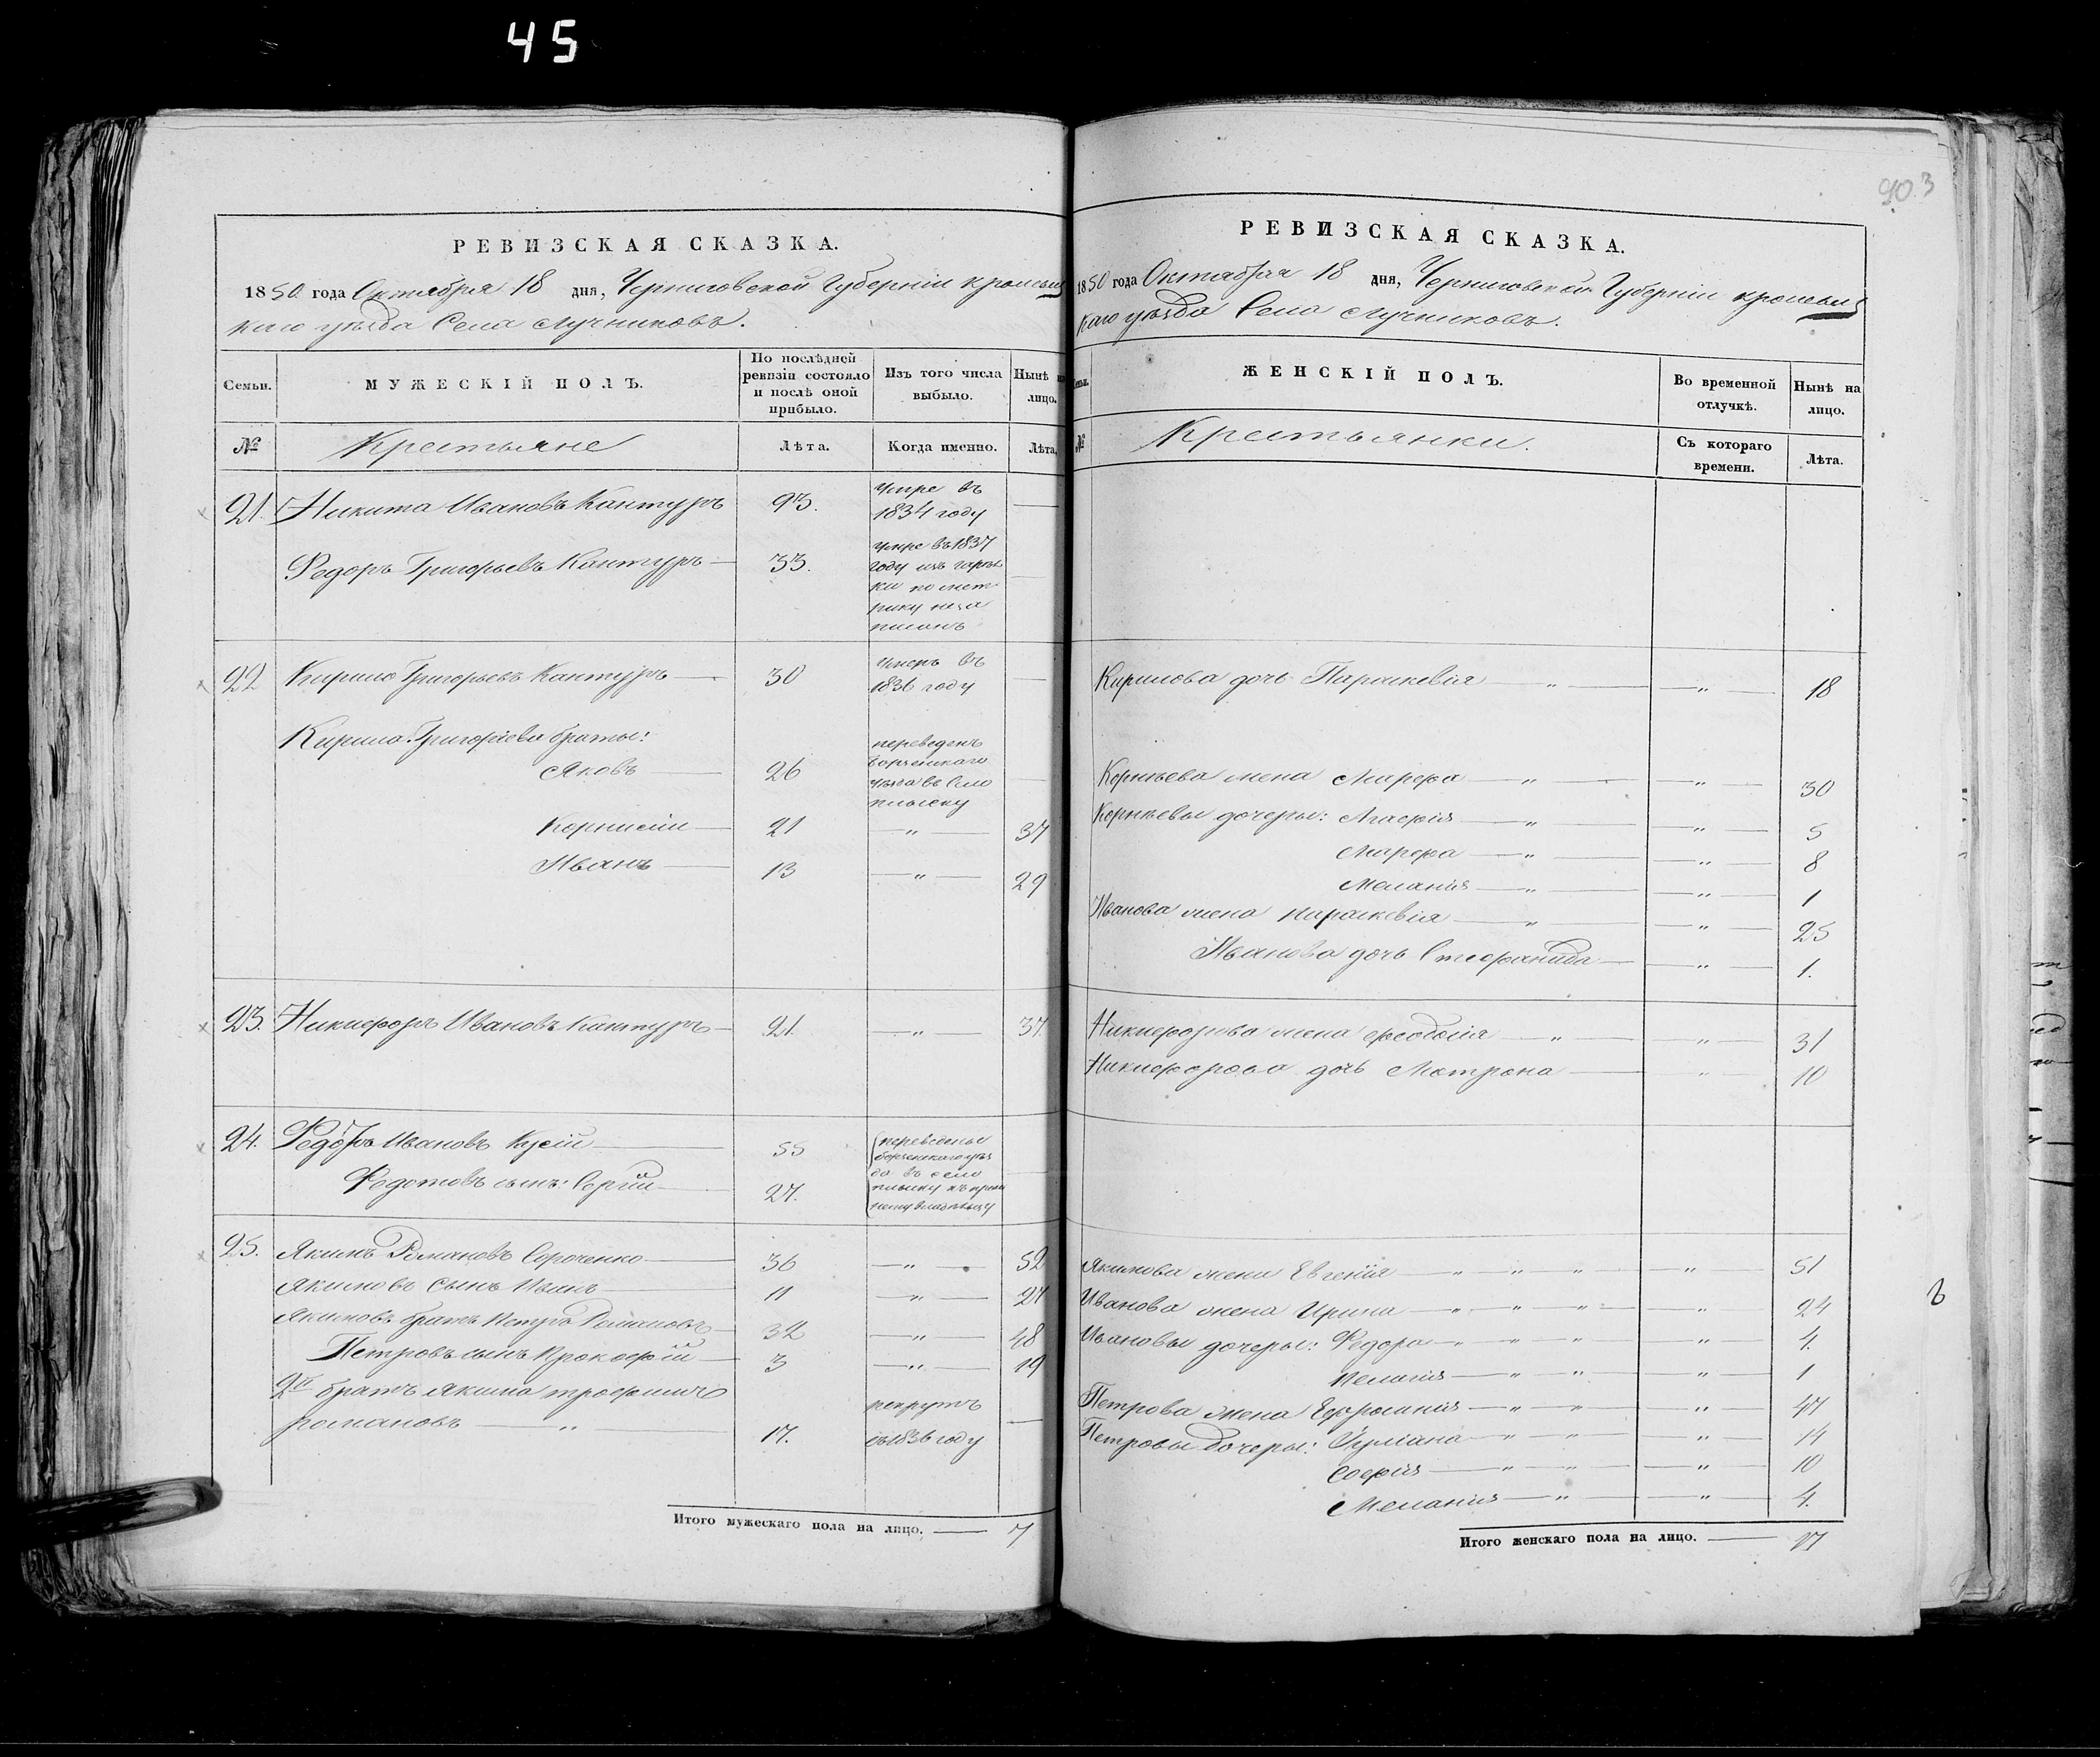 45
903
РЕВИЗСКАЯ СКАЗКА.
1850 года Октября 18 дня, Черниговской Губерніи кролевец
каго уѣзда Села Лучниковъ.
Семьи.
МУЖЕСКІЙ ПОЛЪ.
По послѣдней ревизіи состояло и послѣ оной прибыло.
Изъ того числа выбыло.
Нынѣ на лицо.
№
Крестьяне
Лѣта.
Когда именно.
Лѣта.
21. Никита Ивановъ Кантуръ 93. умре въ
1834 году
Федоръ Григорьевъ Кантуръ 33. умре въ 1837
году
22 Кирило Григорьевъ Кантуръ 30 умеръ въ
1836 году
Кирила Григоріева браты:
Яковъ 26 переведенъ
борзенскаго
уѣзда въ село
плыску
Корнилій 21 — „ — 37
Иванъ 13 — „ — 29
23. Никифоръ Ивановъ Кантуръ 21. — „ — 37.
24. Федотъ Ивановъ 55 переведены
борзенскаго уѣз
да въ село
Федотовъ сынъ: Сергій 27. плыску къ преж
нему владѣльцу
25. Якимъ Романовъ Сороченко 36 — „ — 52
Якимовъ сынъ Иванъ 11 — „ — 27
Якимовъ братъ Петръ Романовъ 32 — „ — 48
Петровъ сынъ Прокофій 3 — „ — 19
2й братъ Якима Трофимъ рекрутъ
романовъ — „ 17. въ 1836 году
Итого мужескаго пола на лицо. — 7
РЕВИЗСКАЯ СКАЗКА.
1850 года Октября 18 дня, Черниговской Губерніи кролевец
каго уѣзда Села Лучниковъ.
ЖЕНСКІЙ ПОЛЪ.
Во временной отлучкѣ.
Нынѣ на лицо.
№
Крестьянки.
Съ котораго времени.
Лѣта.
Кирилова дочь Параскевія — „ — „ — 18
Корнѣева жена Марфа — „ — „ — 30
Корнѣевы дочеры: Агафія — „ — „ — 5
Марфа — „ — „ — 8
Меланія — „ — „ — 1
Иванова жена Параскевія — „ — „ — 25
Иванова дочь Стефанида — „ — 1.
Никифорова жена Феодосія — „ — „ — 31
Никифорова дочь Мотрона — „ — 10
Якимова жена Евгенія — „ „ „ — „ — 51
Иванова жена Ирина — „ „ „ — „ 24
Ивановы дочеры: Федора — „ „ „ — „ — 4.
Пелагія — „ „ — „ — 1
Петрова жена Ефросинія — „ „ — „ — 47
Петровы дочеры: Уліана — „ „ — „ — 14
Софія — „ „ — „ — 10
Меланія — „ — „ — 4.
Итого женскаго пола на лицо. — 17